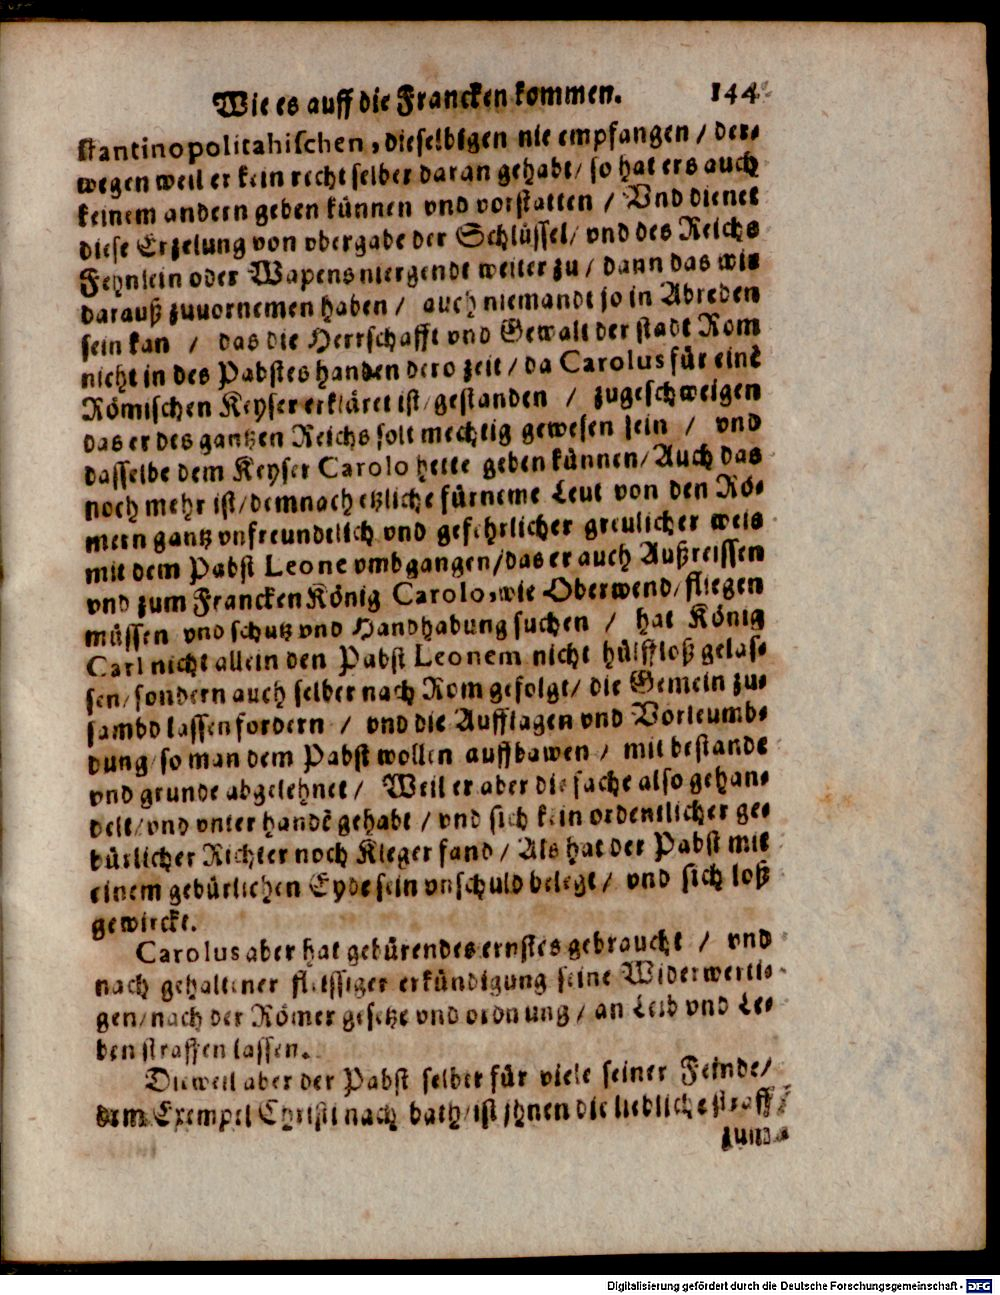 Wie es auff die Francken kommen. 144
stantinopolitahischen, dieselbigen nie empfangen / der-
wegen weil er kein recht selber daran gehabt / so hat ers auch
keinem andern geben künnen vnd vorstatten / Vnd dienet
diese Erzelung von vbergabe der Schlüssel / vnd des Reichs
Fehnlein oder Wapens niergendt weiter zu / dann das wir
darauß zuuornemen haben / auch niemandt so in Abreden
sein kan / das die Herrschafft vnd Gewalt der stadt Rom
nicht in des Pabstes handen dero zeit / da Carolus für einē
Römischen Keyser erkläret ist / gestanden / zugeschweigen
das er des gantzen Reichs solt mechtig gewesen sein / vnd
dasselbe dem Keyser Carolo hette geben künnen / Auch das
noch mehr ist / demnach etzliche fürneme Leut von den Rö-
mern gantz vnfreundtlich vnd gefehrlicher greulicher weis
mit dem Pabst Leone vmbgangen / das er auch Außreissen
vnd zum Francken König Carolo, wie Oberwend / fliegen
müssen vnd schutz vnd Handhabung suchen / hat König
Carl nicht allein den Pabst Leonem nicht hülffloß gelas-
sen / sondern auch selber nach Rom gefolgt / die Gemein zu-
sambd lassen fordern / vnd die Aufflagen vnd Vorleumb-
dung / so man dem Pabst wollen auffbawen / mit bestande
vnd grunde abgelehnet / Weil er aber die sache also gehan-
delt / vnd vnter handē gehabt / vnd sich kein ordentlicher ge-
bürlicher Richter noch Kleger fand / Als hat der Pabst mit
einem gebürlichen Eyde sein vnschuld belegt / vnd sich loß
gewircke.
Carolus aber hat gebürendes ernstes gebraucht / vnd
nach gehaltener fleissiger erkündigung seine Widerwerti-
gen / nach der Römer gesetze vnd ordnung / an Leib vnd Le-
ben straffen lassen.
Dieweil aber der Pabst selber für viele seiner Feinde /
dem Exempel Christi nach bath / ist jhnen die liebliche straff /
zum
Digitalisierung gefördert durch die Deutsche Forschungsgemeinschaft - DFG